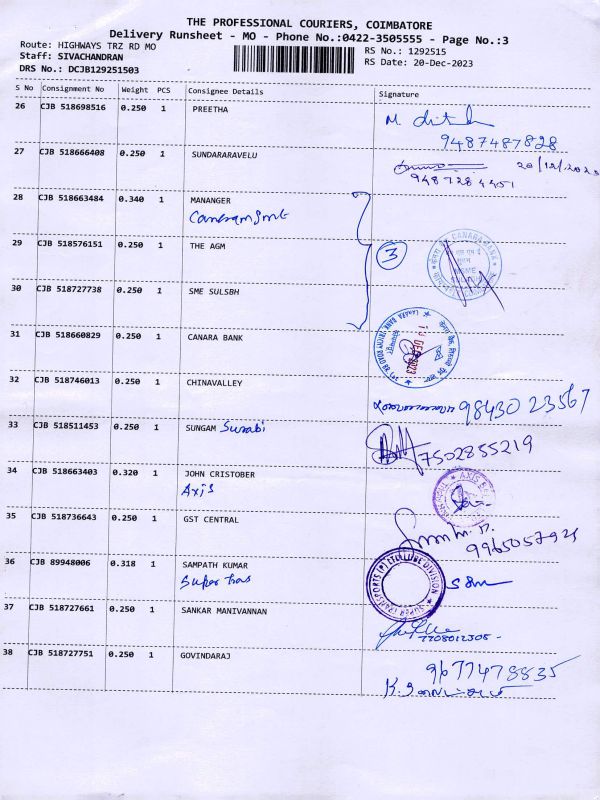 THE PROFESSIONAL COURIERS, COIMBATORE
Delivery Runsheet - MO - Phone No.:0422-3505555 - Page No.:3
Route: HIGHWAYS TRZ RD MO
RS No.: 1292515
Staff: SIVACHANDRAN
RS Date: 20-Dec-2023
DRS No.: DCJB129251503
S No Consignment No Weight PCS Consignee Details Signature
26 CJB 518698516 0.250 1 PREETHA
9487487828
27 CJB 518666408 0.250 1 SUNDARARAVELU
20/12/2023
9487284451
28 CJB 518663484 0.340 1 MANANGER
29 CJB 518576151 0.250 1 THE AGM
3
CANARA BANK
30 CJB 518727738 0.250 1 SME SULSBH
31 CJB 518660829 0.250 1 CANARA BANK
32 CJB 518746013 0.250 1 CHINAVALLEY
98430 23567
33 CJB 518511453 0.250 1 SUNGAM Surabi
7502855219
34 CJB 518663403 0.320 1 JOHN CRISTOBER
Axis
35 CJB 518736643 0.250 1 GST CENTRAL
9965057921
36 CJB 89948006 0.318 1 SAMPATH KUMAR
Super trans
SUPER TRANSPORTS (P) LTD., LUBE DIVISION
37 CJB 518727661 0.250 1 SANKAR MANIVANNAN
7708012308
38 CJB 518727751 0.250 1 GOVINDARAJ
9677478835